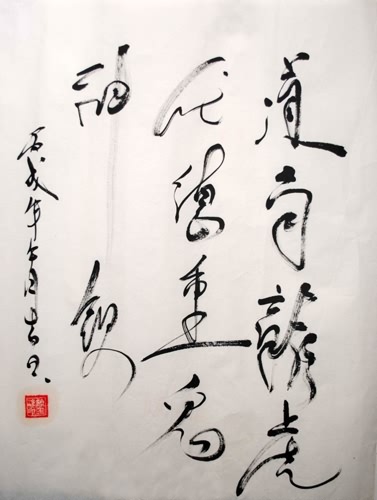 道高龍虎
伏德重鬼
神欽
丙戌年六月吉日